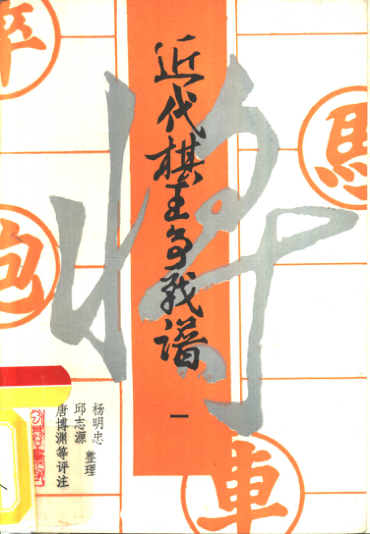 近代棋王争战谱
一
杨明忠
邱志源
整理
唐博渊等评注
将
馬
車